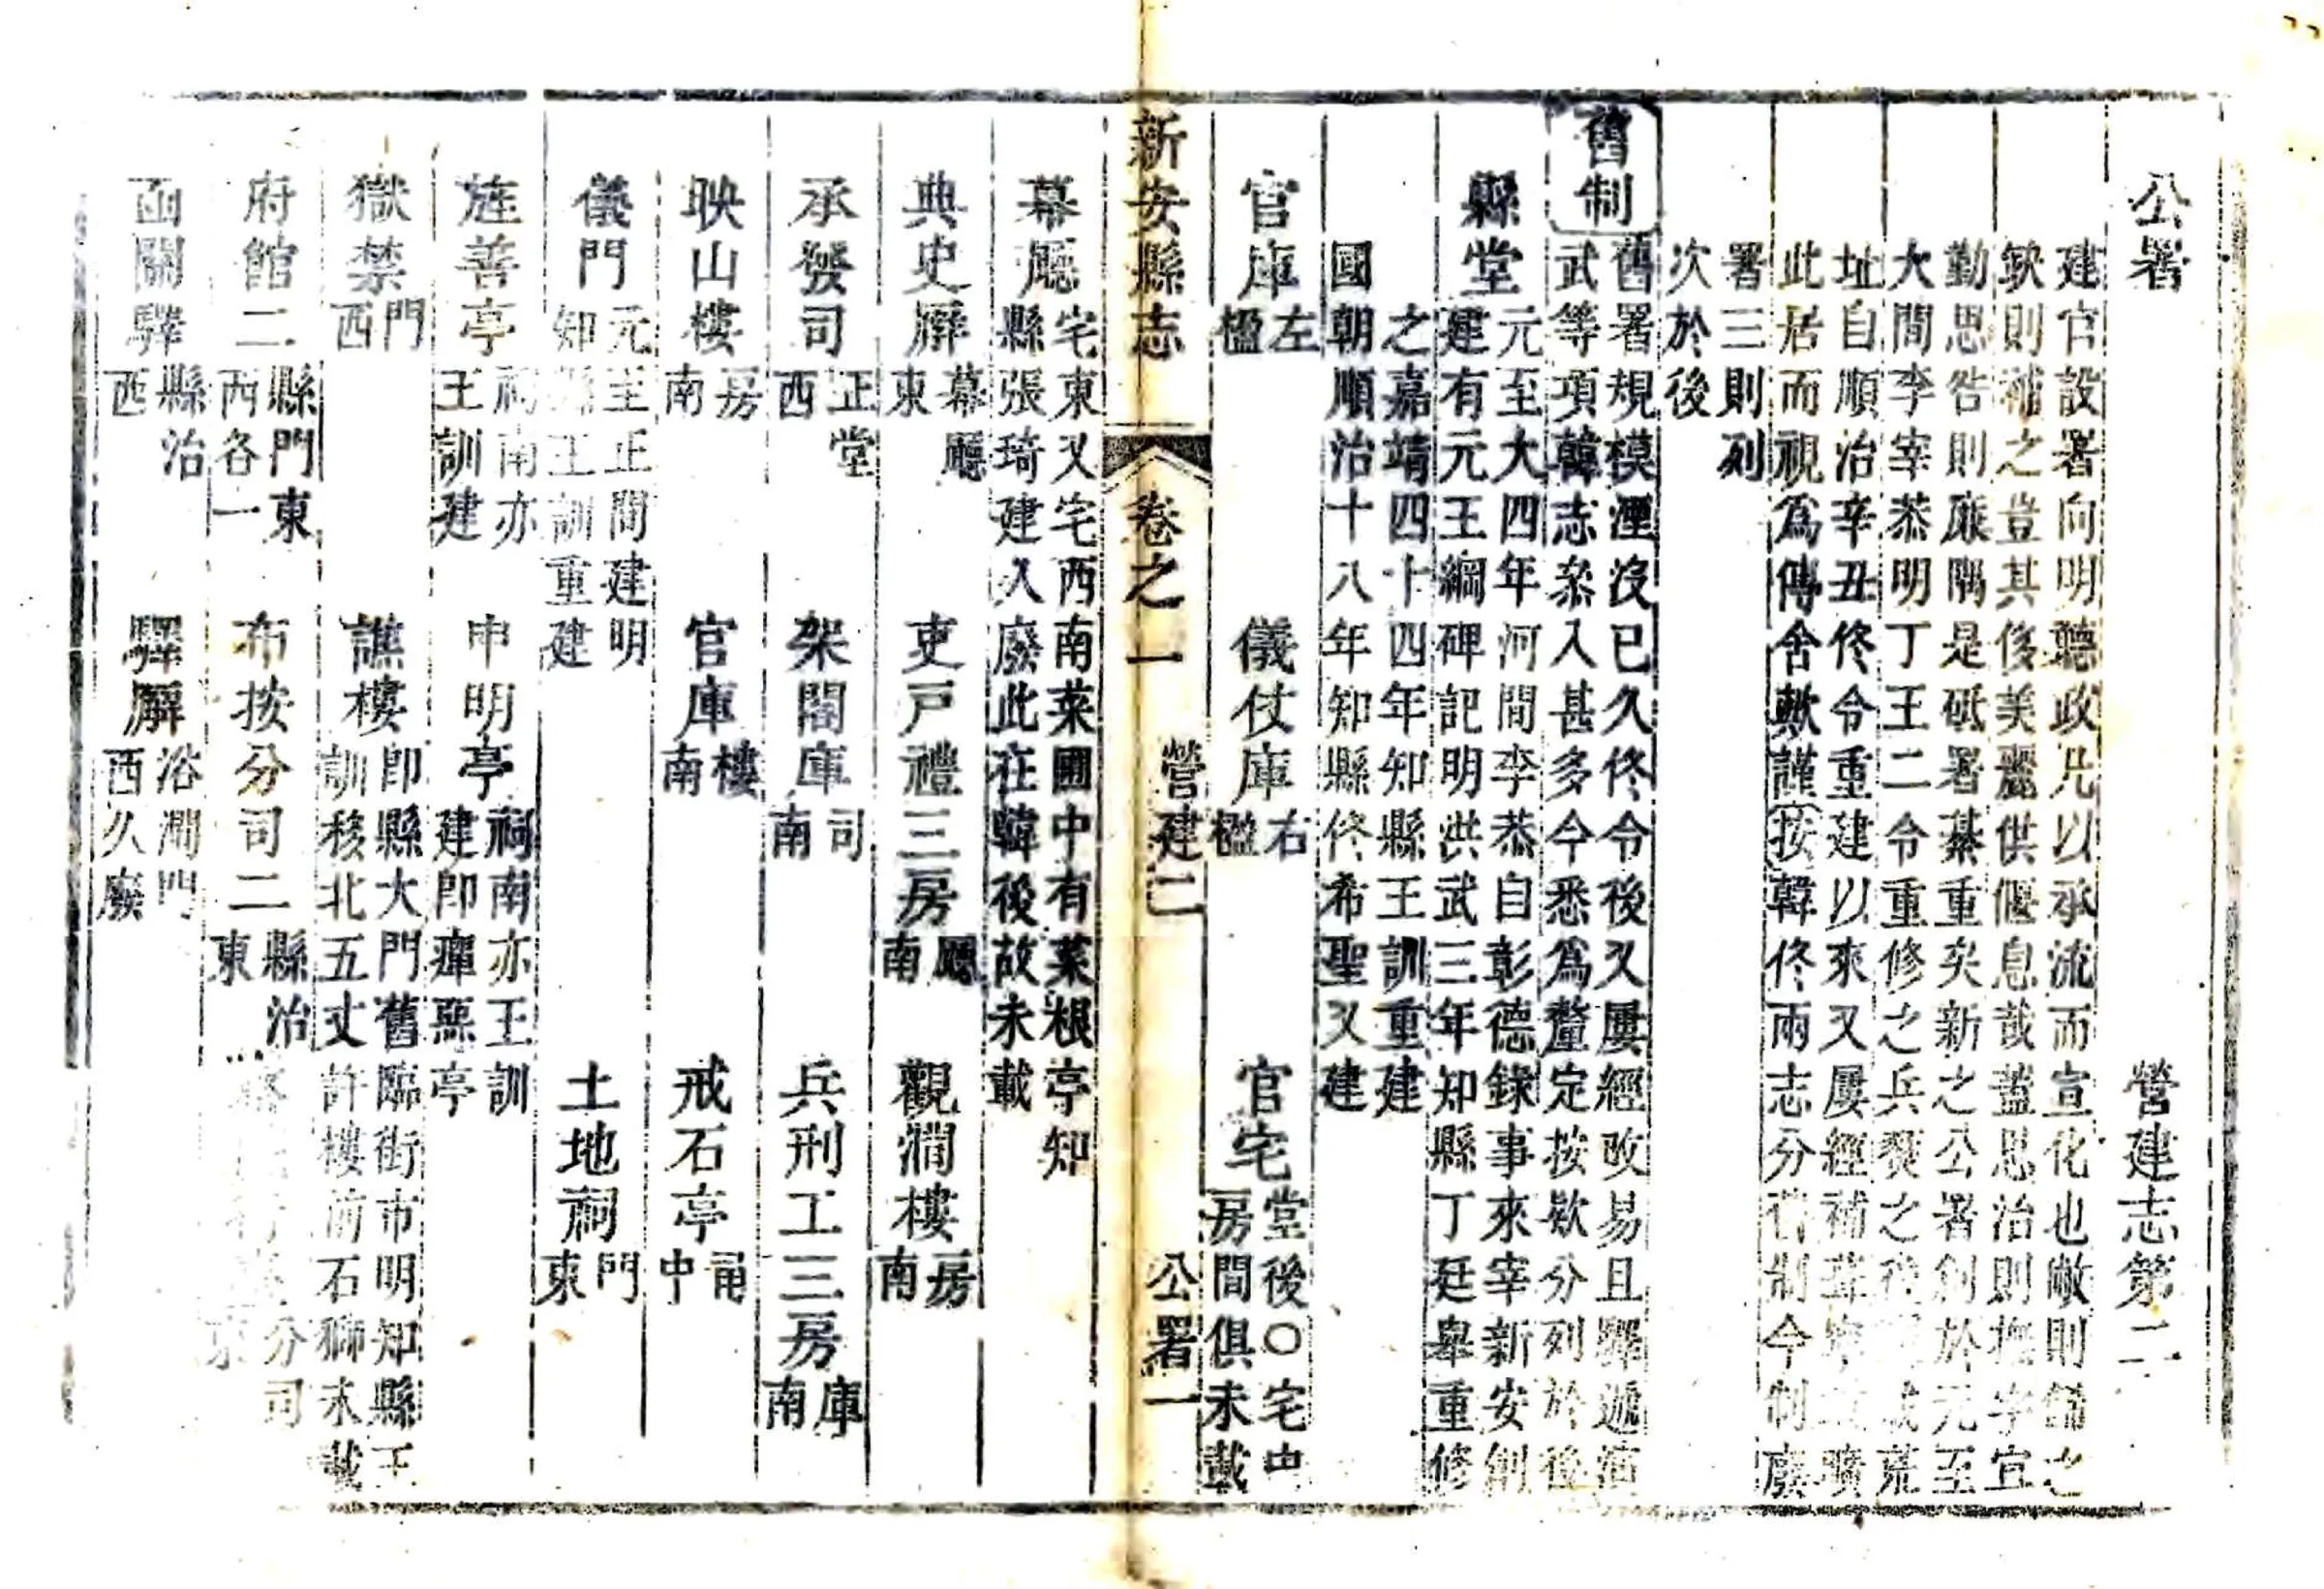 公署 營建志第二
建官設署向明聽政凡以承流而宣化也敝則餙之
缺則補之豈其侈美麗供偃息哉蓋思治則撫字宣
勤思告則廉隅是砥署綦重矣新之公署創於元至
大間李宰恭明丁王二令重修之兵燹之後成荒
址自順治辛丑佟令重建以來又屢經補葺曠
此居而視為傳舍歟謹按韓佟兩志分舊制今制廢
署三則列
次於後
舊制
舊署規模湮沒已久佟令後又屢經改易且驛遞演
武等項韓志叅入甚多今悉為釐定按欵分列於後
縣堂
元至大四年河間李恭自彰德錄事來宰新安創
建有元王綱碑記明洪武三年知縣丁廷臯重修
之嘉靖四十四年知縣王訓重建
國朝順治十八年知縣佟希聖又建
官庫左楹 儀仗庫右楹 官宅堂後〇宅中房間俱未載
新安縣志 卷之一 營建二 公署一
幕廳
宅東又宅西南菜圃中有菜根亭知
縣張琦建久廢此在韓後故未載
典史廨幕廳東 吏戶禮三房廳南 觀澗樓房南
承發司正堂西 架閣庫司南 兵刑工三房庫南
映山樓房南 官庫樓南 戒石亭甬中
儀門元主正間建明知縣王訓重建 土地祠門東
旌善亭祠南亦王訓建 申明亭祠南亦王訓建卽癉惡亭
獄禁門西 譙樓卽縣大門舊臨街市明知縣王訓移北五丈許樓前石獅未載
府館二縣門東西各一 布按分司二縣治東 分司東
函關驛縣治西 驛廨浴澗門西久廢